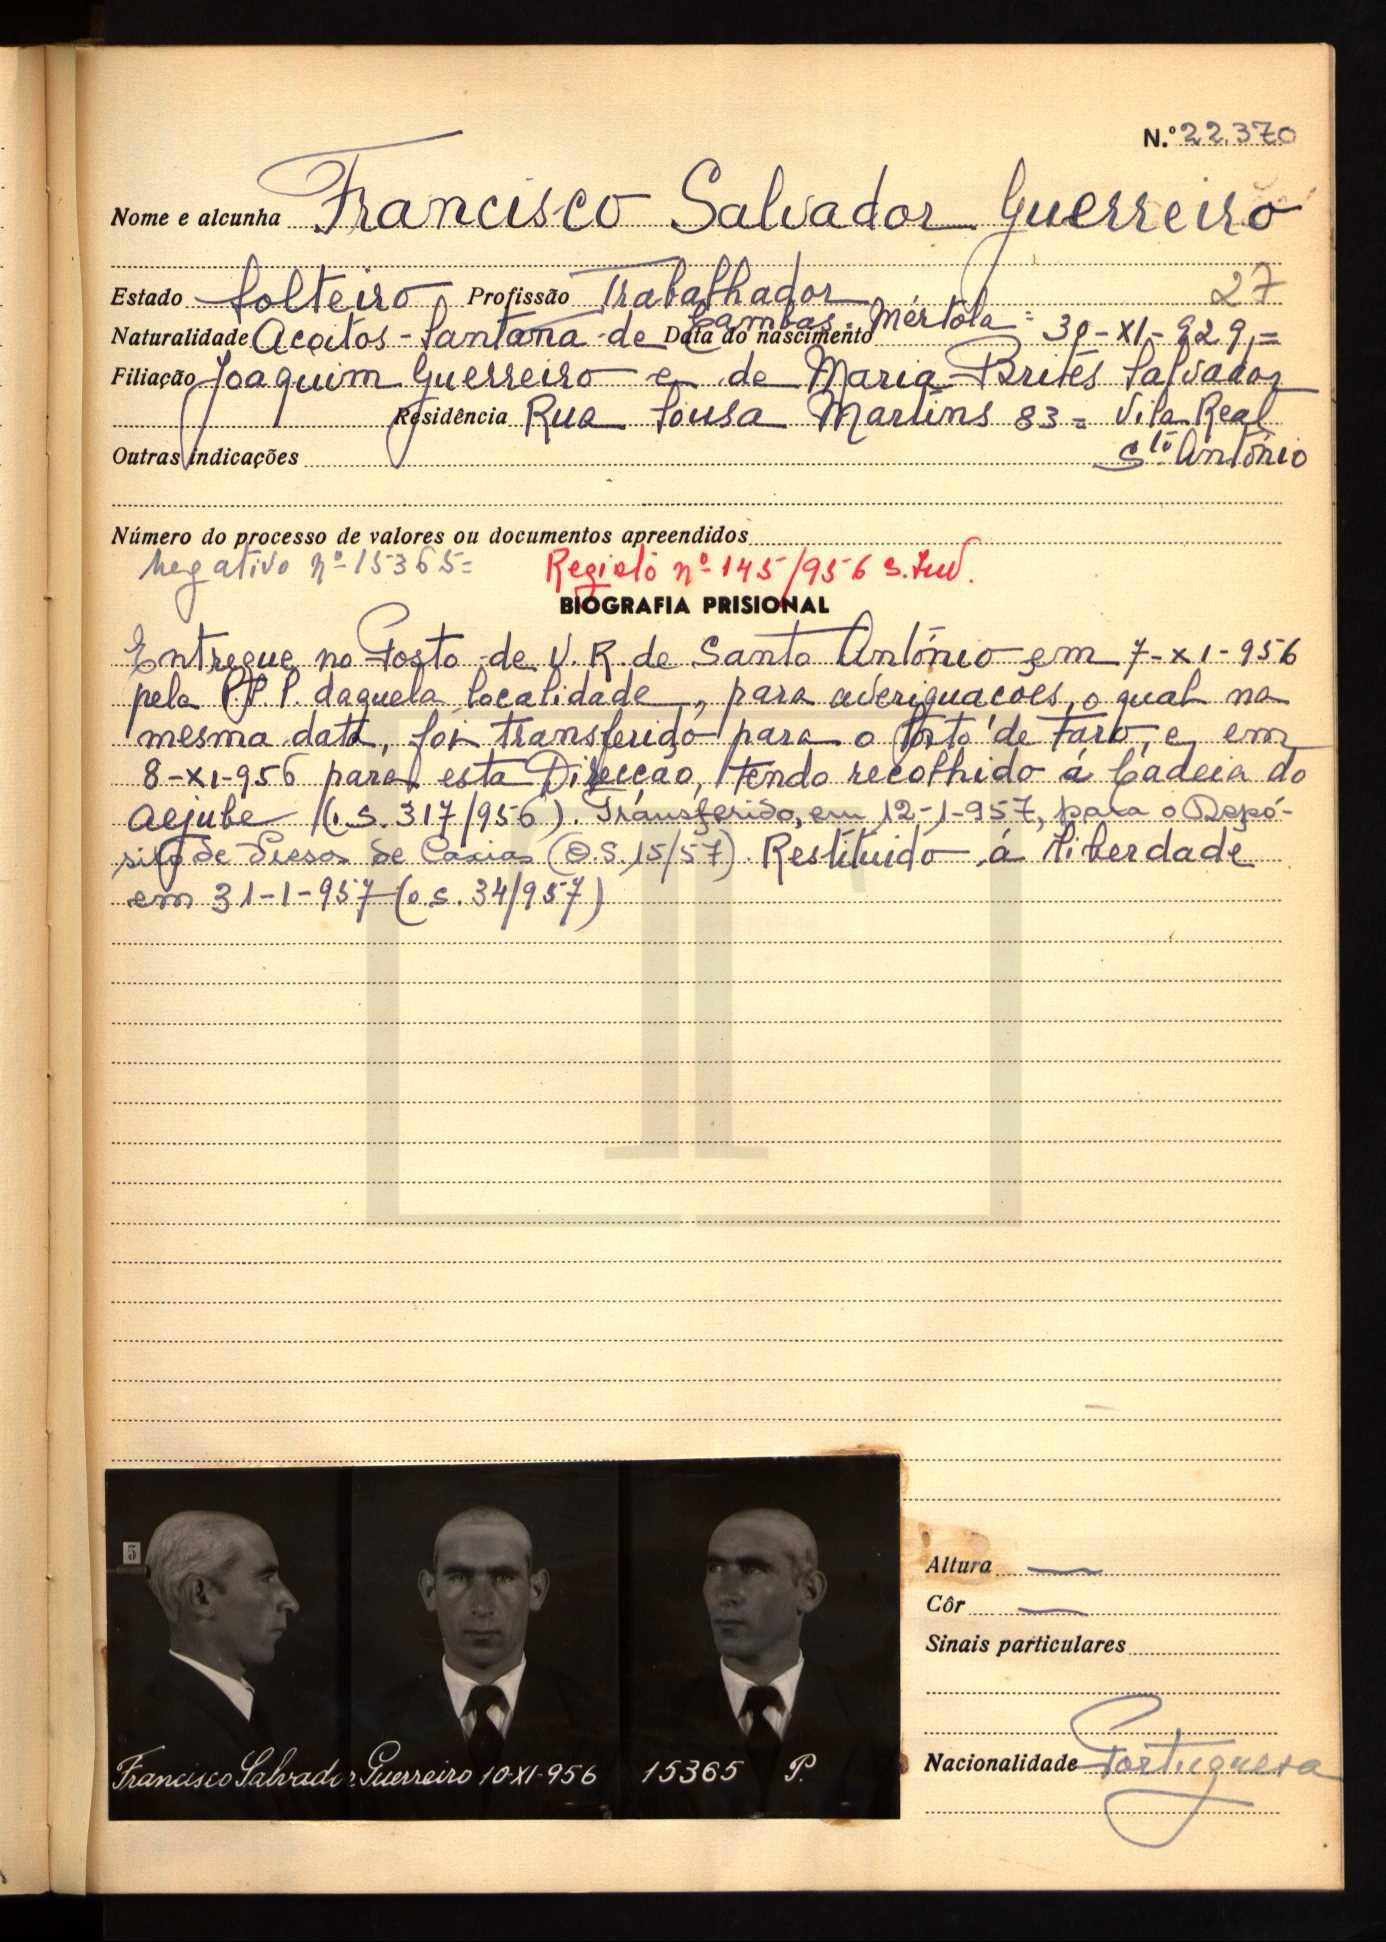 N.º 22.370
Nome e alcunha Francisco Salvador Guerreiro
Estado Solteiro Profissão Trabalhador 27
Naturalidade Açoitos - Santana de Cambas - Mértola = Data do nascimento 30-XI-929,=
Filiação Joaquim Guerreiro e de Maria Brites Salvador
Residência Rua Sousa Martins 83 = Vila Real
Outras indicações Stº António
Número do processo de valores ou documentos apreendidos
Negativo nº 15365= Registo nº 145/956 S.
BIOGRAFIA PRISIONAL
Entregue no Posto de V. R. de Santo António em 7-XI-956
pela P.S.P. daquela localidade, para averiguações, o qual na
mesma data, foi transferido para o Posto de Faro, e, em
8-XI-956 para esta Direcção, tendo recolhido á Cadeia do
Aljube (O.S. 317/956). Transferido, em 12-1-957, para o Depó-
sito de Presos de Caxias (O.S. 15/57). Restituido á liberdade
em 31-1-957 (O.S. 34/957)
5
Francisco Salvador Guerreiro 10-XI-956 15365 P.
Altura
Côr
Sinais particulares
Nacionalidade Portuguesa